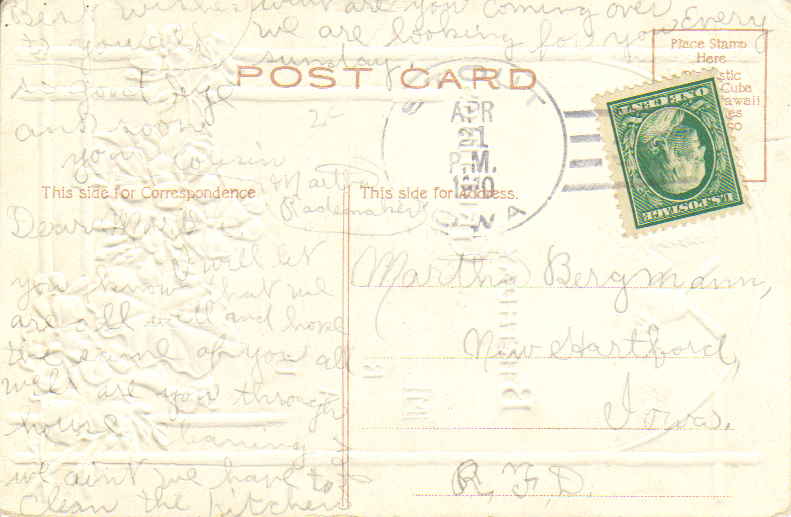 Best wishes when are you coming over
to you all we are looking for you every
sunday
in your
and soon
your cousin
Martha
Rademaker
POST CARD
Place Stamp
Here
Cuba
APR
21
P.M.
1910
IOWA
U.S. POSTAGE
ONE CENT
This side for Correspondence
This side for Address.
Dear Martha
I will let
you know that we
are all well and hope
the same of you all
well are you through
house cleaning
we aint we have to
clean the kitchen
Martha Bergmann,
New Hartford,
Iowa.
R. F. D.